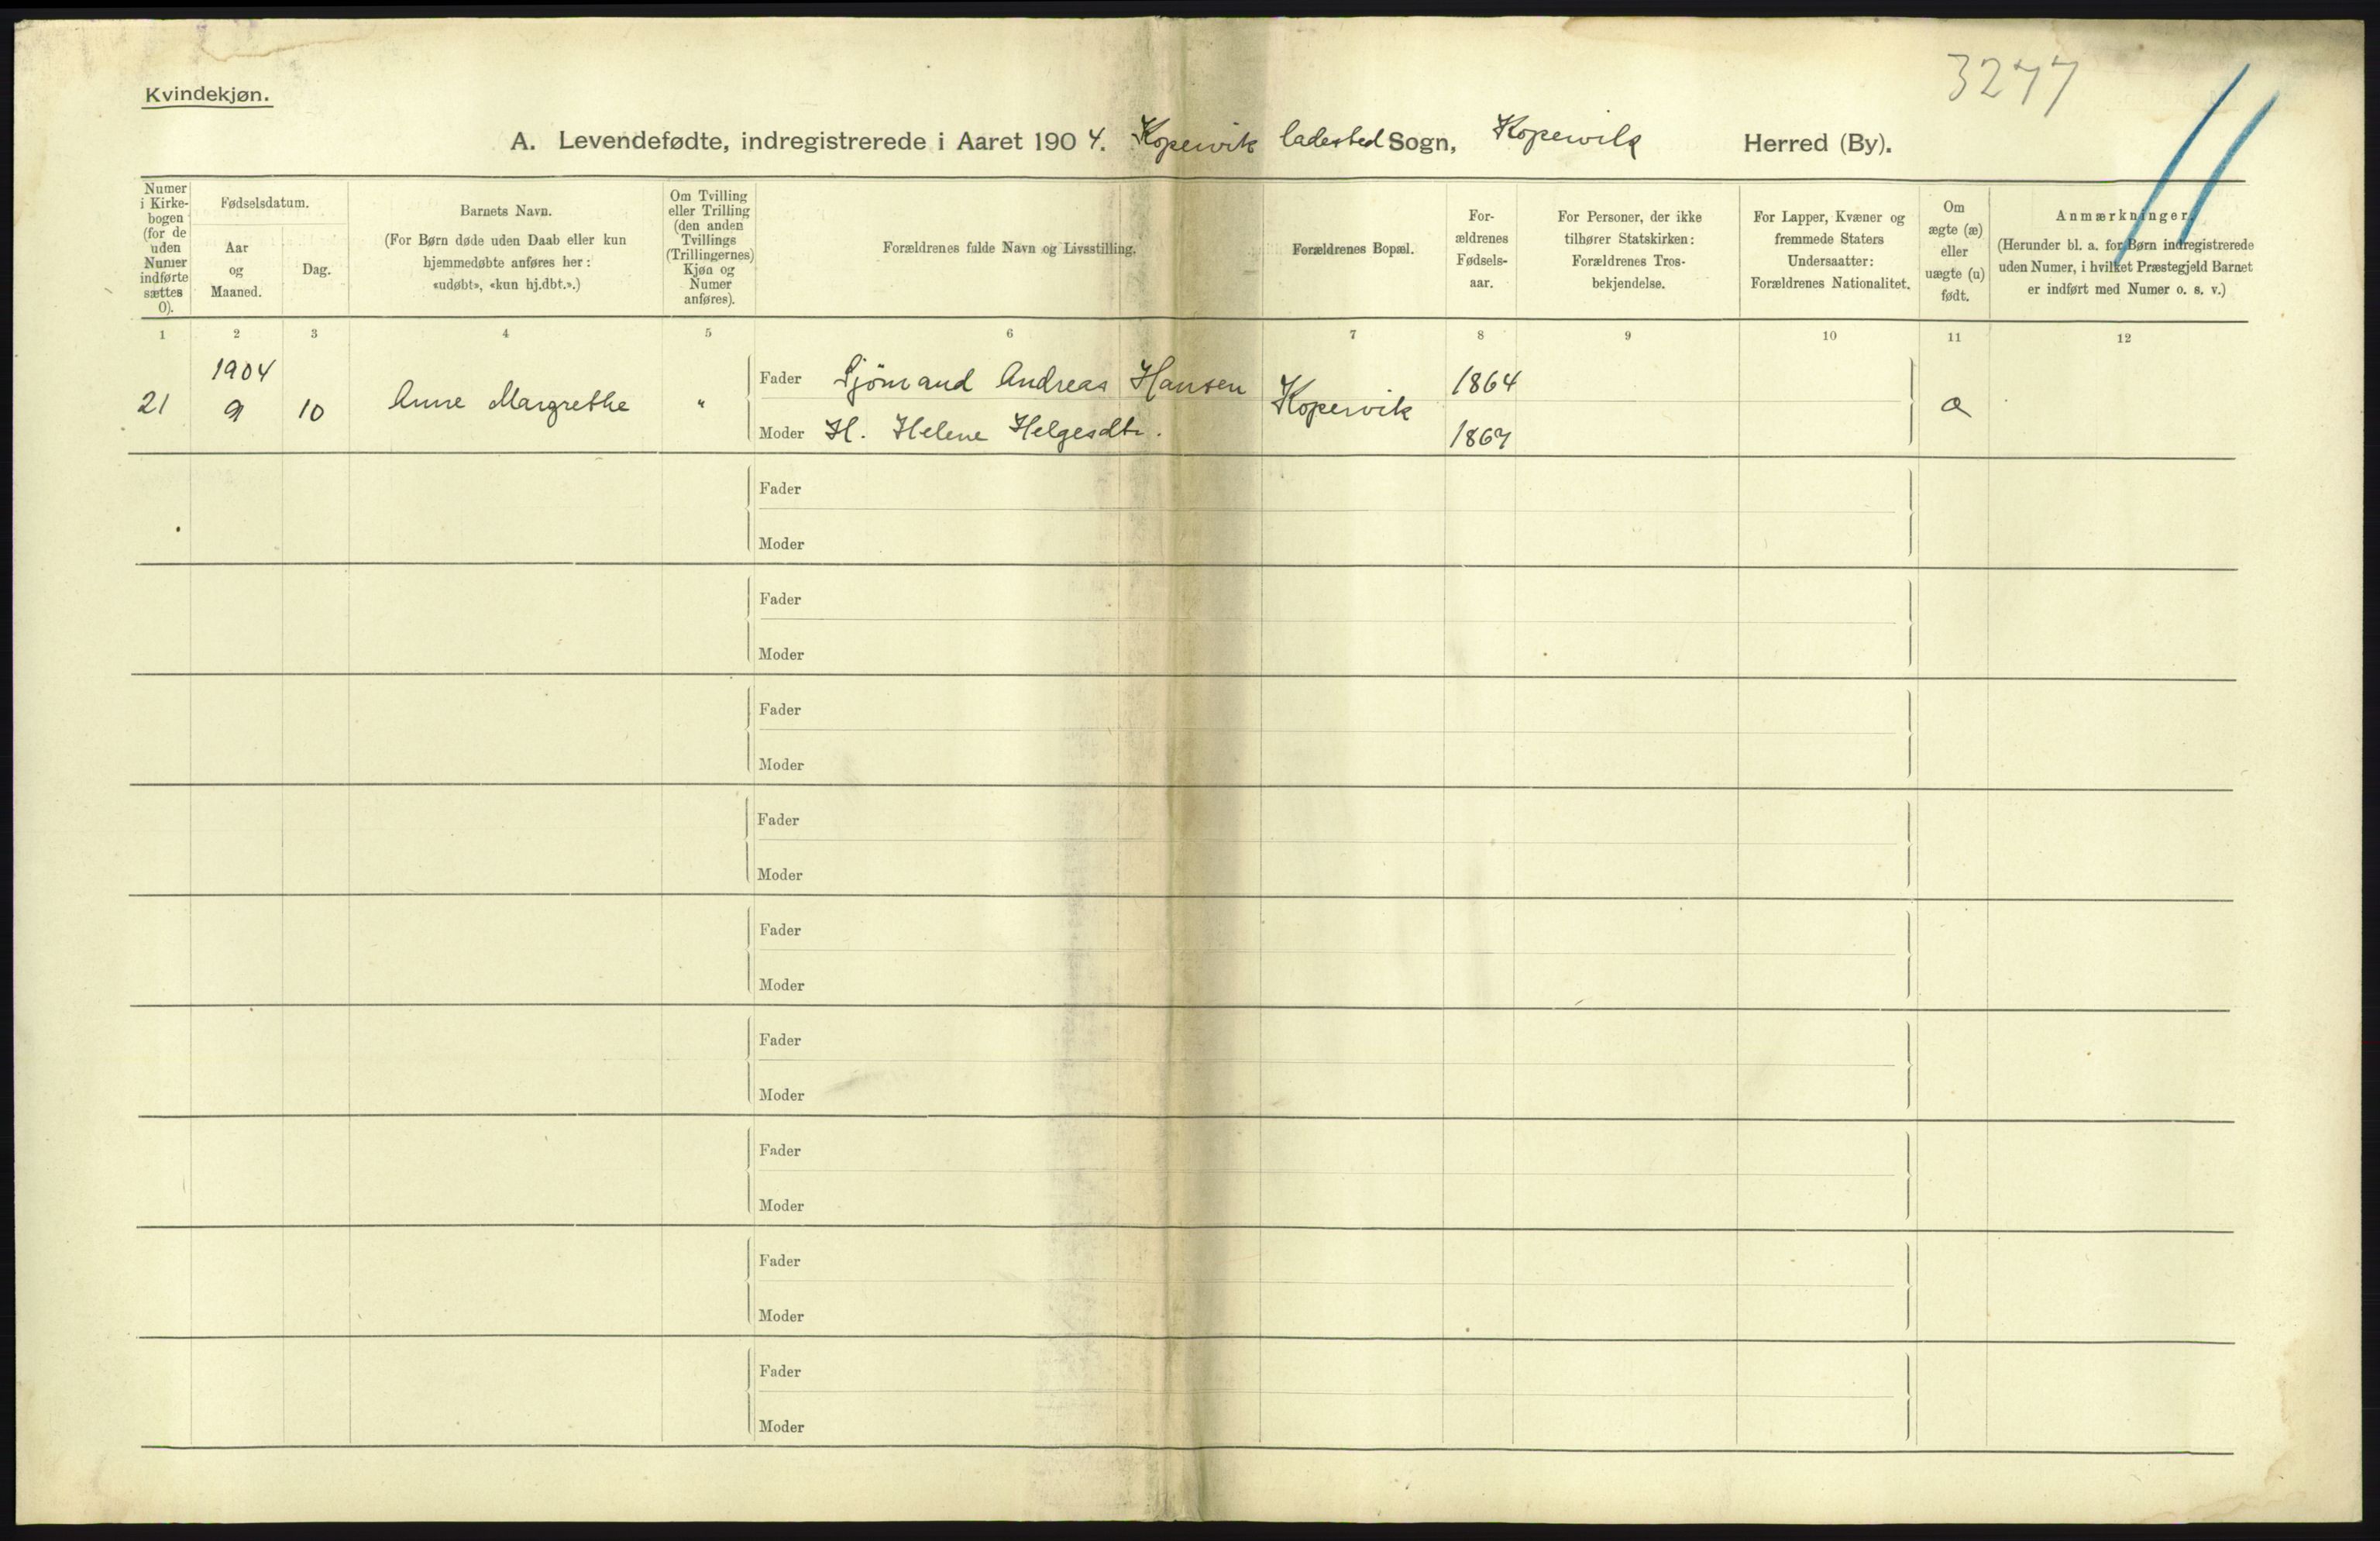 3277
Kvindekjøn.
A. Levendefødte, indregistrerede i Aaret 1904. Kopervik ladested Sogn, Kopervik Herred (By).
Numer
i Kirke-
bogen
(for de
uden
Numer
indførte
sættes
0).
Fødselsdatum.
Aar
og
Maaned.
Dag.
Barnets Navn.
(For Børn døde uden Daab eller kun
hjemmedøbte anføres her:
«udøbt», «kun hj.dbt.».)
Om Tvilling
eller Trilling
(den anden
Tvillings
(Trillingernes)
Kjøn og
Numer
anføres).
Forældrenes fulde Navn og Livsstilling.
Forældrenes Bopæl.
For-
ældrenes
Fødsels-
aar.
For Personer, der ikke
tilhører Statskirken:
Forældrenes Tros-
bekjendelse.
For Lapper, Kvæner og
fremmede Staters
Undersaatter:
Forældrenes Nationalitet.
Om
ægte (æ)
eller
uægte (u)
født.
Anmærkninger.
(Herunder bl. a. for Børn indregistrerede
uden Numer, i hvilket Præstegjeld Barnet
er indført med Numer o. s. v.)
1 2 3 4 5 6 7 8 9 10 11 12
1904
21 9 10 Anne Margrethe "
Fader Sjömand Andreas Hansen
Moder H. Helene Helgesdtr.
Kopervik
1864
1867
Fader
Moder
Fader
Moder
Fader
Moder
Fader
Moder
Fader
Moder
Fader
Moder
Fader
Moder
Fader
Moder
Fader
Moder